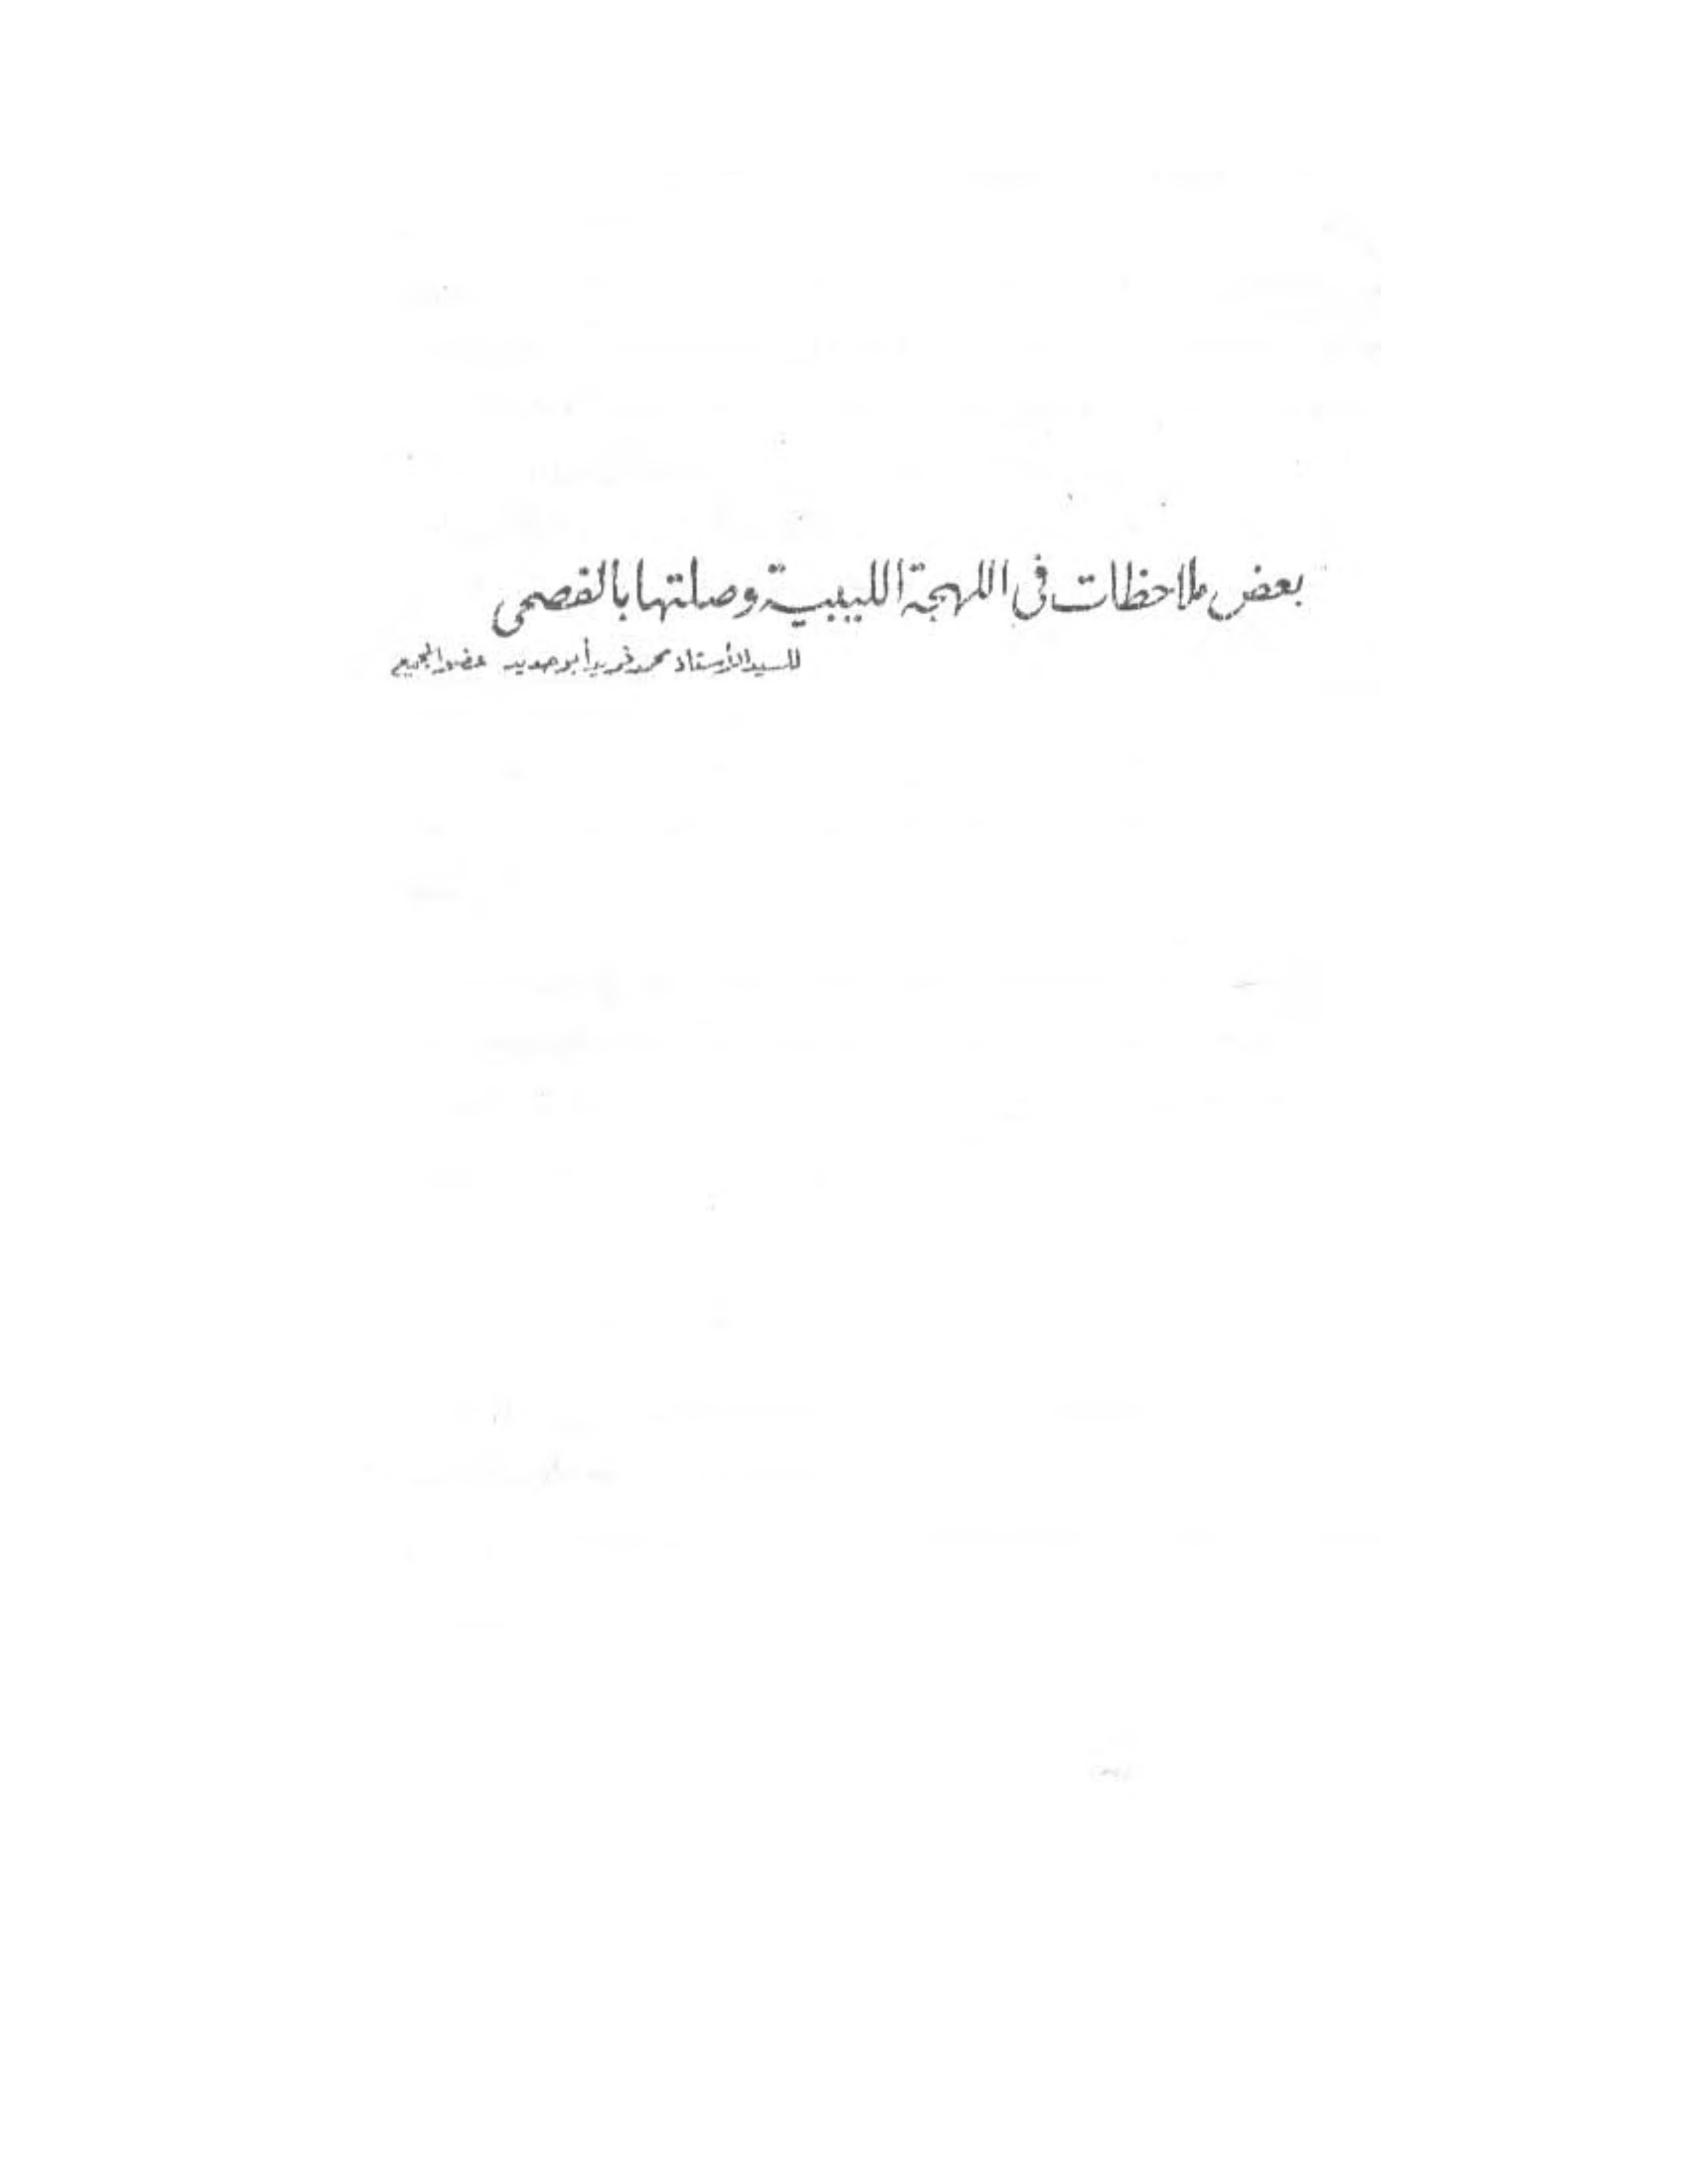 بعض ملاحظات في اللهجة الليبية وصلتها بالفصحى
للسيد الأستاذ محمد فريد أبو حديد عضو المجمع